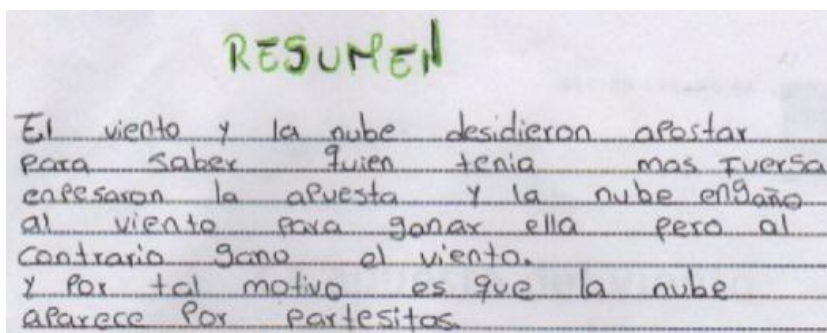 RESUMEN
El viento y la nube desidieron apostar
para saber quien tenia mas fuersa
enpesaron la apuesta y la nube engaño
al viento para ganar ella pero al
contrario gano el viento.
y por tal motivo es que la nube
aparece por partesitos.